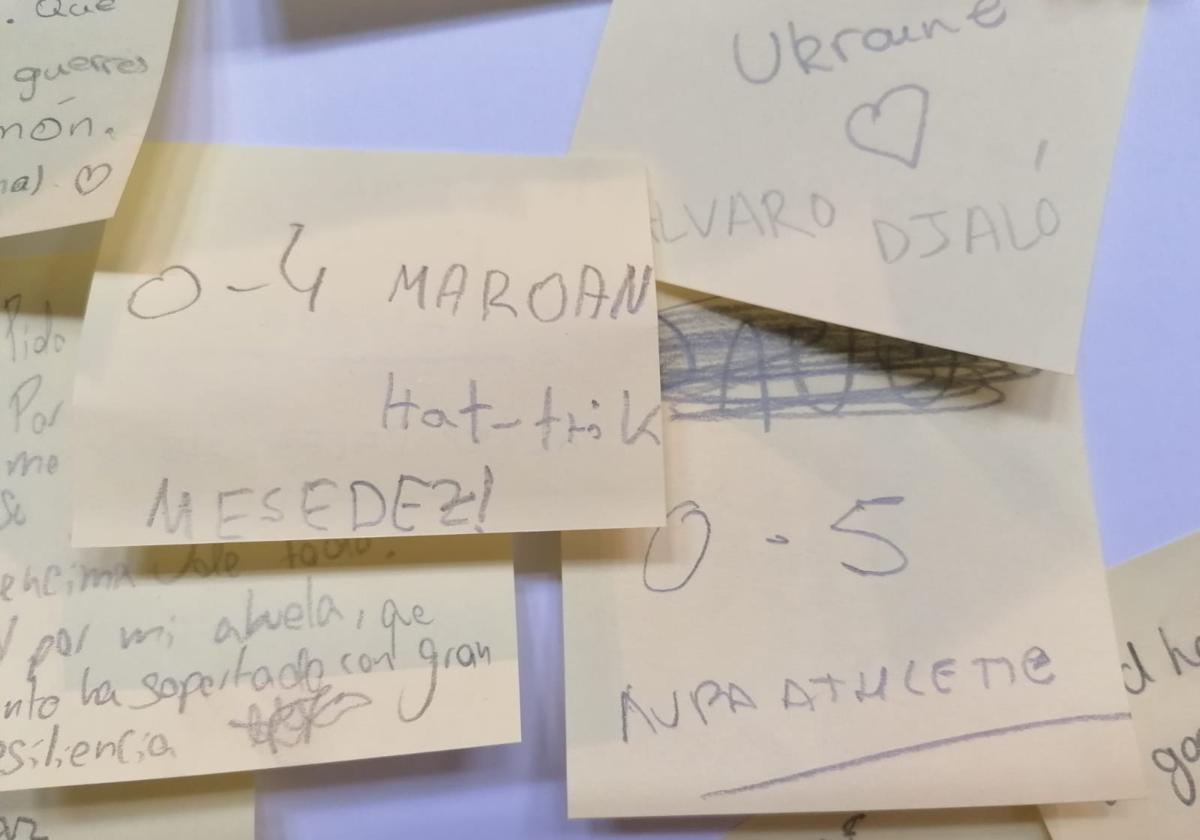 . Que
guerres
món.
♡
Ukraine
♡
ALVARO DJALÓ
0-4 MAROAN
Hat-trik
MESEDEZ!
0-5
AUPA ATHLETIC
Pido
Por
me
Se
encima vale todo.
Y por mi abuela, que
ha soportado con gran
resiliencia